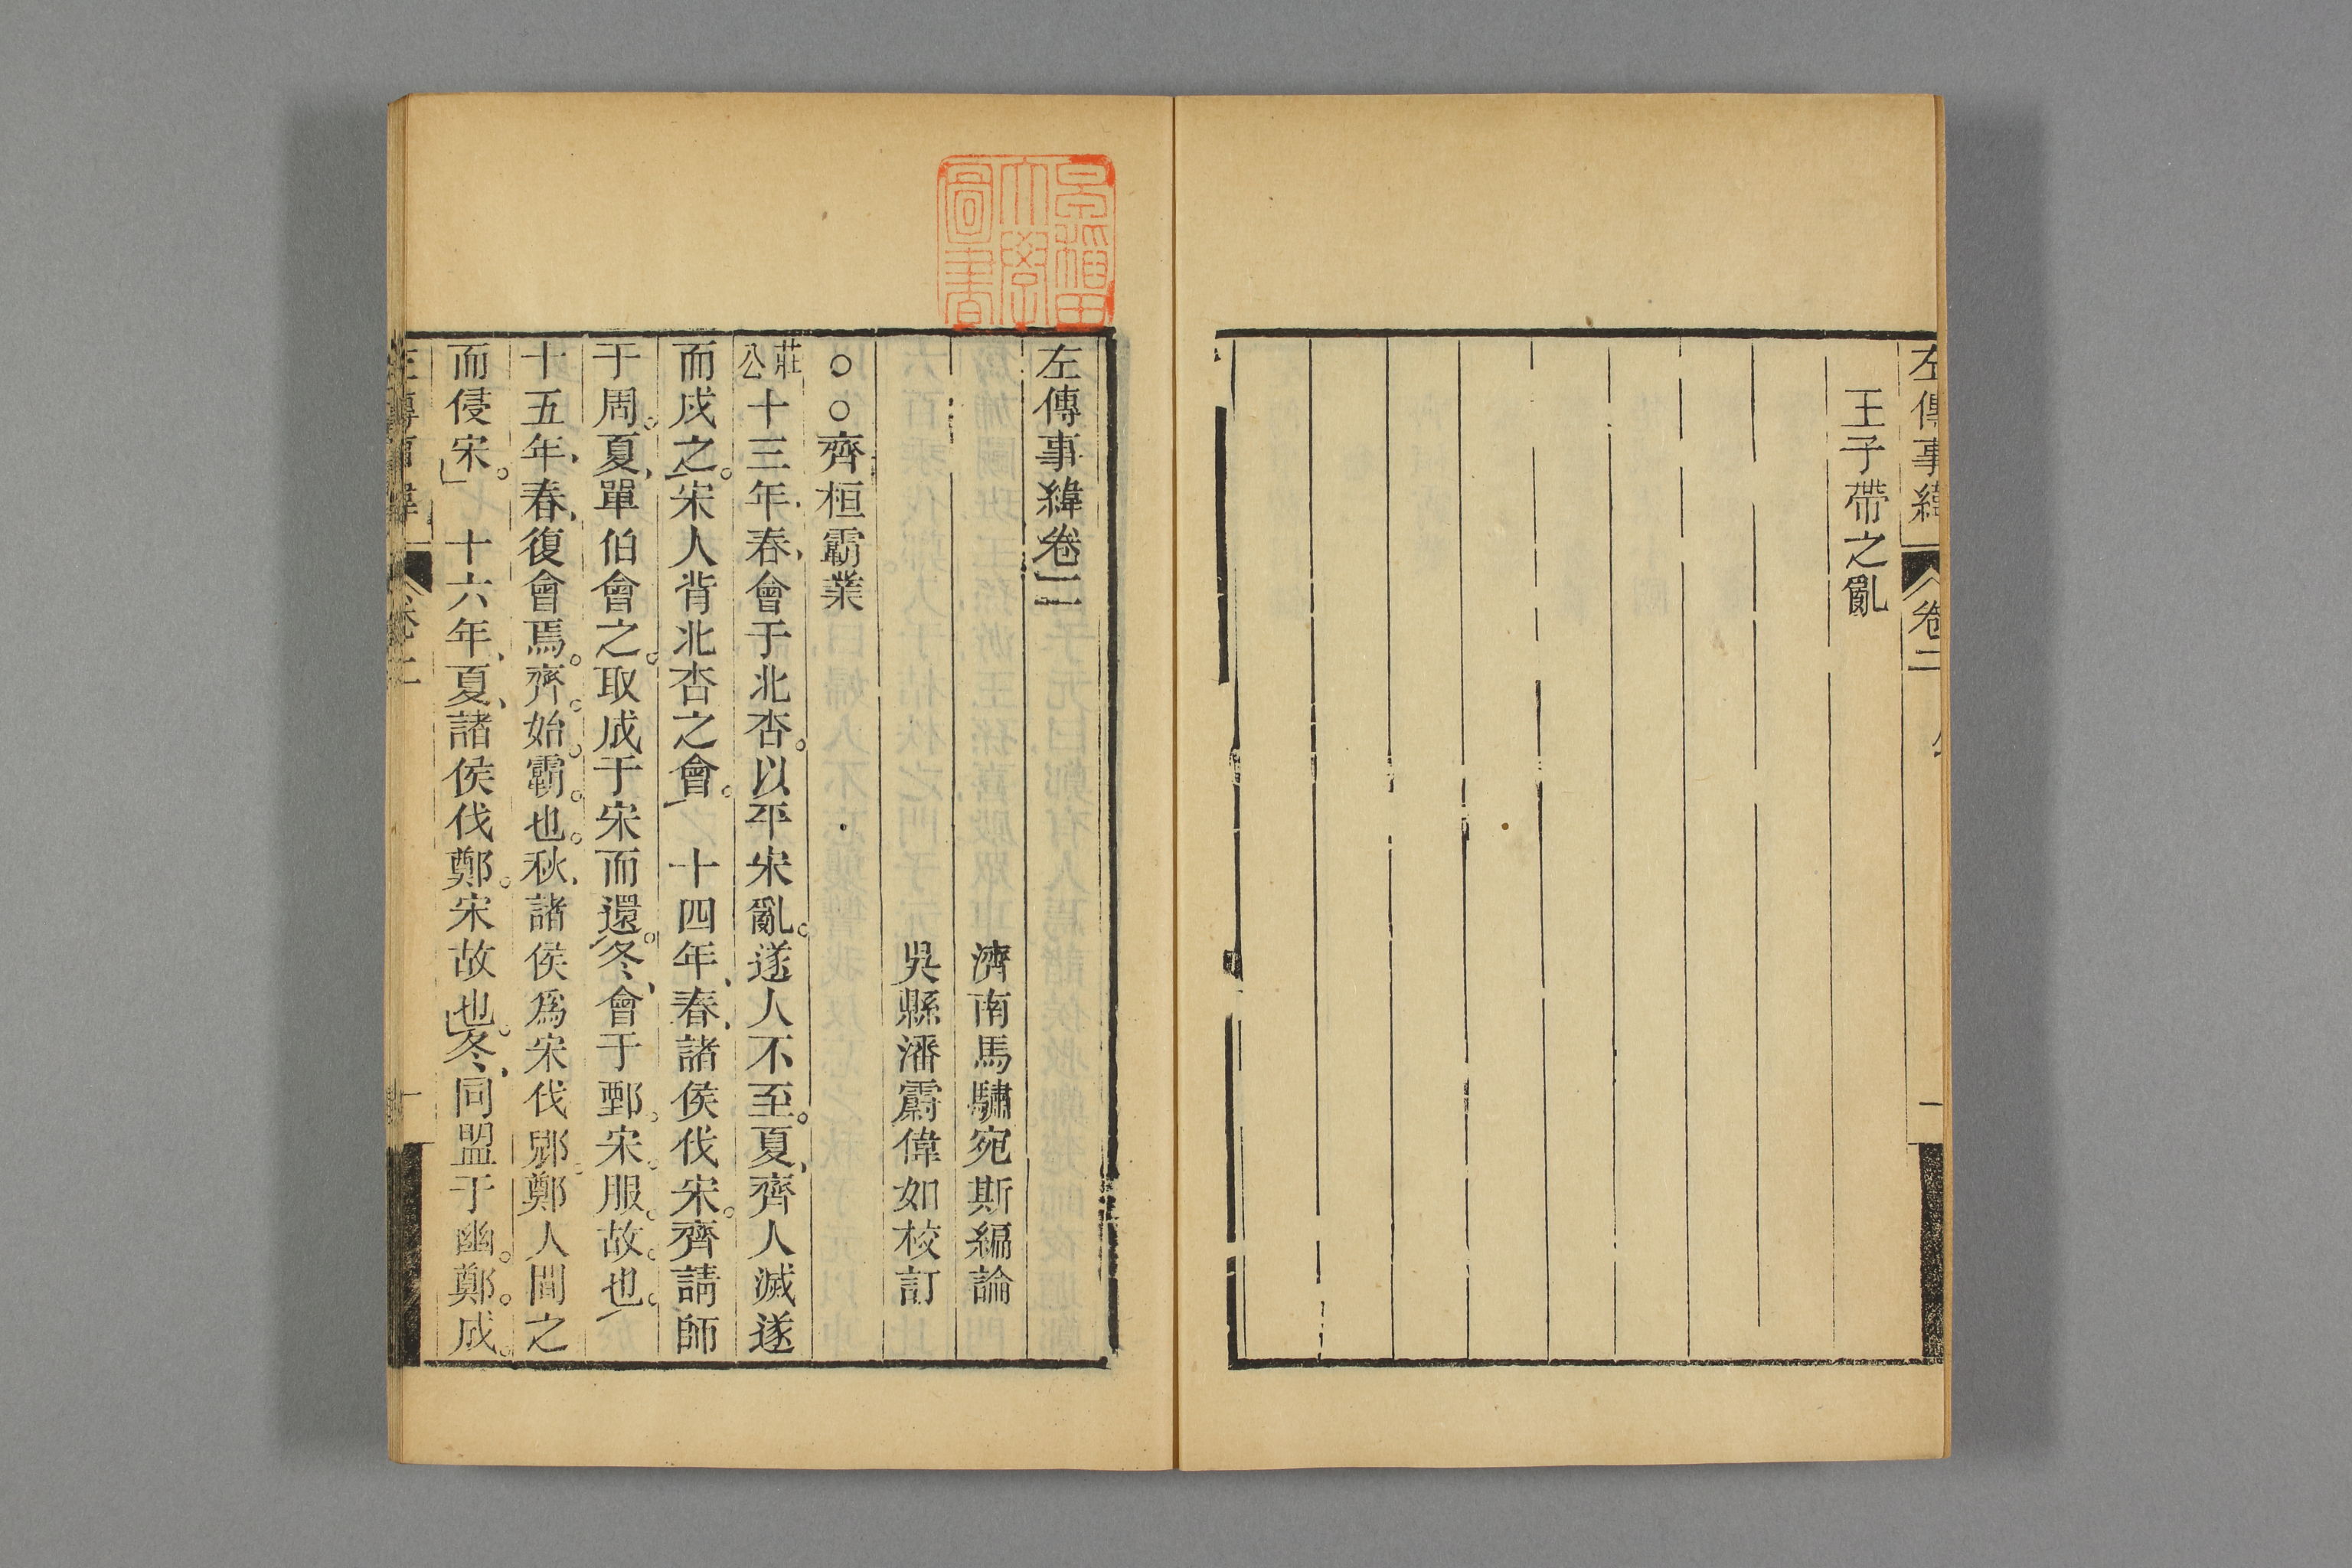 左傳事緯
卷二
一
王子帶之亂
早稲田
大學
圖書
左傳事緯卷二
濟南馬驌宛斯編論
吳縣潘霨偉如校訂
○○齊桓霸業
莊公十三年春會于北杏。以平宋亂。遂人不至。夏齊人滅遂
而戍之。宋人背北杏之會。 十四年春諸侯伐宋。齊請師
于周。夏單伯會之。取成于宋而還。冬會于鄄。宋。服。故。也。
十五年春復會焉。齊。始。霸。也。秋諸侯爲宋伐郳。鄭人間之
而侵宋。 十六年夏諸侯伐鄭。宋故也。冬同盟于幽。鄭。成。
左傳事緯
卷二
一